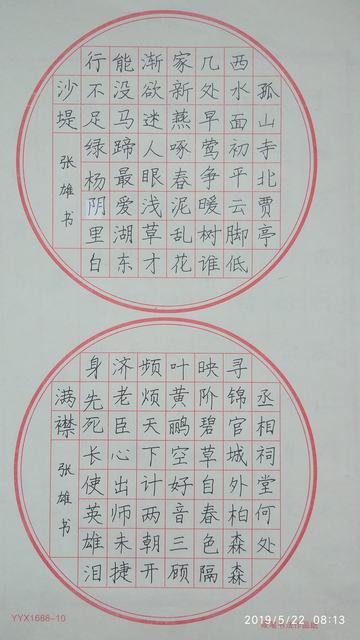 孤山寺北贾亭
西水面初平云脚低
几处早莺争暖树谁
家新燕啄春泥乱花
渐欲迷人眼浅草才
能没马蹄最爱湖东
行不足绿杨阴里白
沙堤
张雄书
丞相祠堂何处
寻锦官城外柏森森
映阶碧草自春色隔
叶黄鹂空好音三顾
频烦天下计两朝开
济老臣心出师未捷
身先死长使英雄泪
满襟
张雄书
YYX1688-10
2019/5/22 08:13